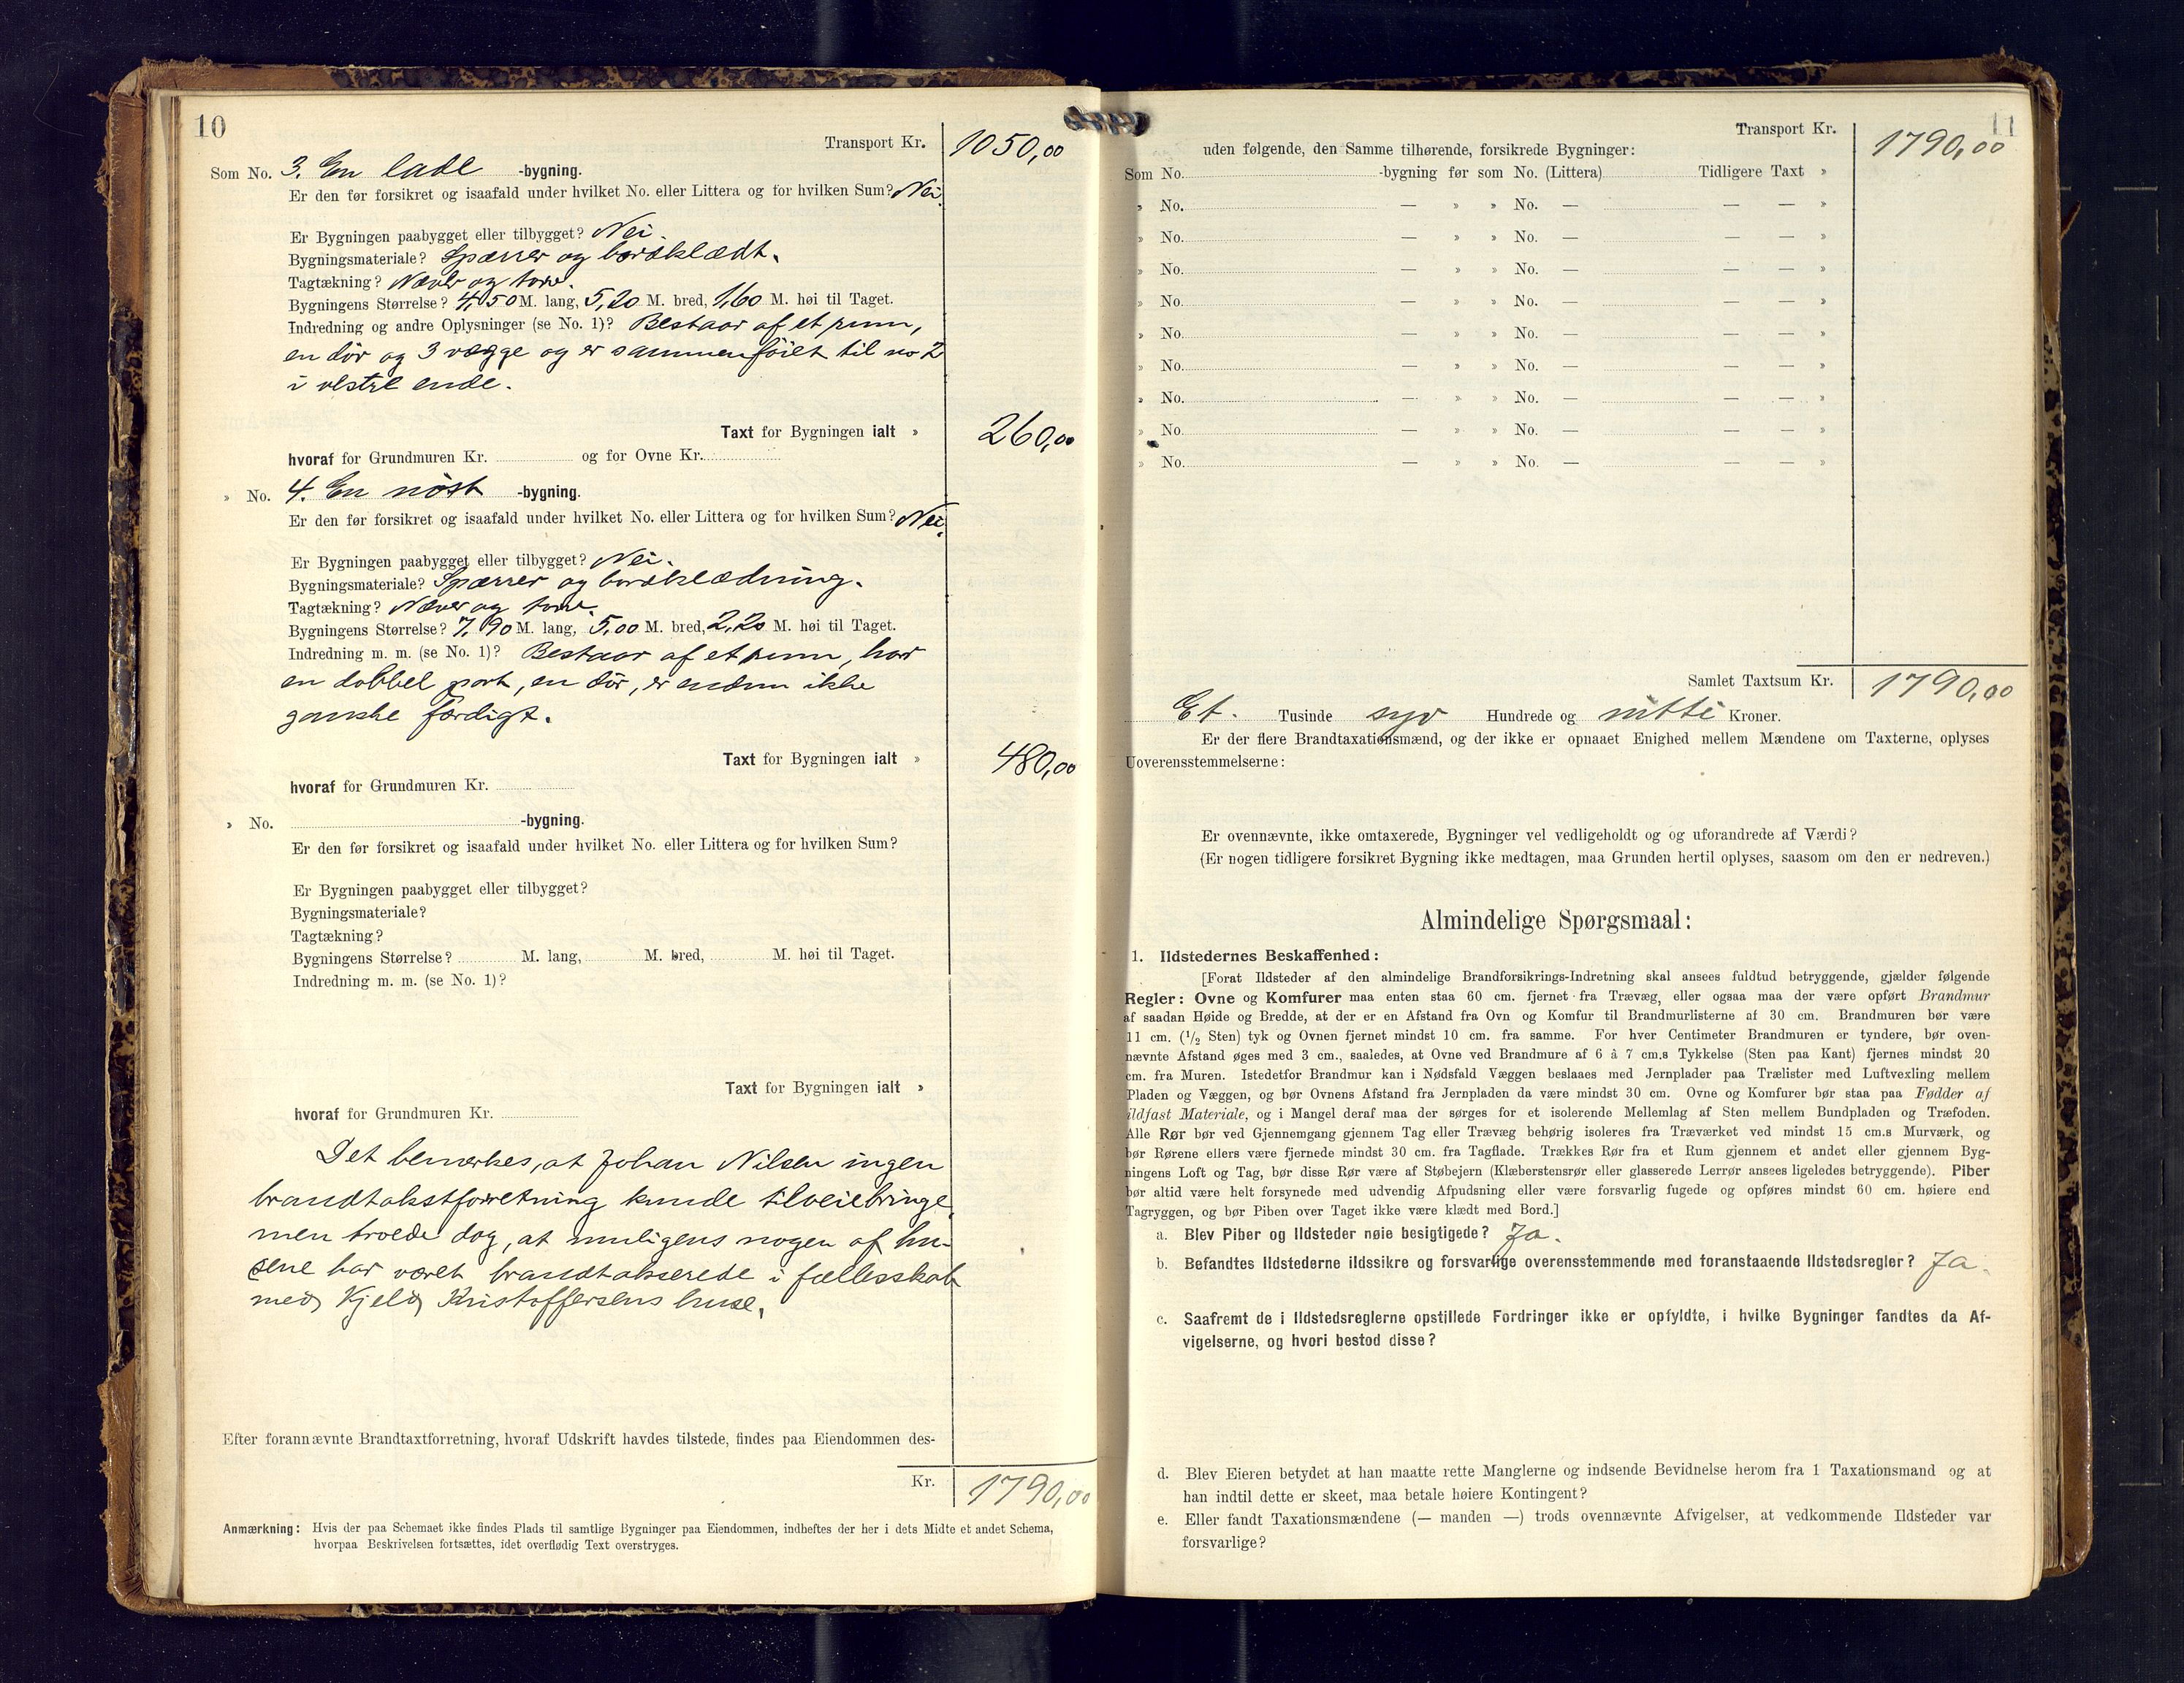 10
Transport Kr. 1050,00
Som No. 3. En lade -bygning.
Er den før forsikret og isaafald under hvilket No. eller Littera og for hvilken Sum? Nei.
Er Bygningen paabygget eller tilbygget? Nei.
Bygningsmateriale? Spærrer og bordklædt.
Tagtækning? Næver og torv.
Bygningens Størrelse? 4,50 M. lang, 5,20 M. bred, 1,60 M. høi til Taget.
Indredning og andre Oplysninger (se No. 1)? Bestaar af et rum,
en dör og 3 vægge og er sammenföiet til no 2
i vestre ende.
Taxt for Bygningen ialt » 260,00
hvoraf for Grundmuren Kr. og for Ovne Kr.
» No. 4. En nöst -bygning.
Er den før forsikret og isaafald under hvilket No. eller Littera og for hvilken Sum? Nei.
Er Bygningen paabygget eller tilbygget? Nei.
Bygningsmateriale? Spærrer og bordklædning.
Tagtækning? Næver og torv.
Bygningens Størrelse? 7,90 M. lang, 5,00 M. bred, 2,20 M. høi til Taget.
Indredning m. m. (se No. 1)? Bestaar af et rum, har
en dobbel port, en dör, er endnu ikke
ganske færdigt.
Taxt for Bygningen ialt » 480,00
hvoraf for Grundmuren Kr.
» No. -bygning.
Er den før forsikret og isaafald under hvilket No. eller Littera og for hvilken Sum?
Er Bygningen paabygget eller tilbygget?
Bygningsmateriale?
Tagtækning?
Bygningens Størrelse? M. lang, M. bred, M. høi til Taget.
Indredning m. m. (se No. 1)?
Taxt for Bygningen ialt »
hvoraf for Grundmuren Kr.
Det bemerkes, at Johan Nilsen ingen
brandtakstforretning kunde tilveiebringe,
men troede dog, at muligens nogen af hu-
sene har været brandtakserede i fællesskab
med Kjeld Kristoffersens huse.
Efter forannævnte Brandtaxtforretning, hvoraf Udskrift havdes tilstede, findes paa Eiendommen des-
Kr. 1790,00
Anmærkning: Hvis der paa Schemaet ikke findes Plads til samtlige Bygninger paa Eiendommen, indheftes der her i dets Midte et andet Schema,
hvorpaa Beskrivelsen fortsættes, idet overflødig Text overstryges.
11
Transport Kr. 1790,00
uden følgende, den Samme tilhørende, forsikrede Bygninger:
Som No. -bygning før som No. (Littera) Tidligere Taxt »
» No. — » » No. — — — »
» No. — » » No. — — — »
» No. — » » No. — — — »
» No. — » » No. — — — »
» No. — » » No. — — — »
» No. — » » No. — — — »
» No. — » » No. — — — »
» No. — » » No. — — — »
» No. — » » No. — — — »
Samlet Taxtsum Kr. 1790,00
Et. Tusinde syv Hundrede og nitti Kroner.
Er der flere Brandtaxationsmænd, og der ikke er opnaaet Enighed mellem Mændene om Taxterne, oplyses
Uoverensstemmelserne:
Er ovennævnte, ikke omtaxerede, Bygninger vel vedligeholdt og og uforandrede af Værdi?
(Er nogen tidligere forsikret Bygning ikke medtagen, maa Grunden hertil oplyses, saasom om den er nedreven.)
Almindelige Spørgsmaal:
1. Ildstedernes Beskaffenhed:
[Forat Ildsteder af den almindelige Brandforsikrings-Indretning skal ansees fuldtud betryggende, gjælder følgende
Regler: Ovne og Komfurer maa enten staa 60 cm. fjernet fra Trævæg, eller ogsaa maa der være opført Brandmur
af saadan Høide og Bredde, at der er en Afstand fra Ovn og Komfur til Brandmurlisterne af 30 cm. Brandmuren bør være
11 cm. (1/2 Sten) tyk og Ovnen fjernet mindst 10 cm. fra samme. For hver Centimeter Brandmuren er tyndere, bør oven-
nævnte Afstand øges med 3 cm., saaledes, at Ovne ved Brandmure af 6 à 7 cm.s Tykkelse (Sten paa Kant) fjernes mindst 20
cm. fra Muren. Istedetfor Brandmur kan i Nødsfald Væggen beslaaes med Jernplader paa Trælister med Luftvexling mellem
Pladen og Væggen, og bør Ovnens Afstand fra Jernpladen da være mindst 30 cm. Ovne og Komfurer bør staa paa Fødder af
ildfast Materiale, og i Mangel deraf maa der sørges for et isolerende Mellemlag af Sten mellem Bundpladen og Træfoden.
Alle Rør bør ved Gjennemgang gjennem Tag eller Trævæg behørig isoleres fra Træværket ved mindst 15 cm.s Murværk, og
bør Rørene ellers være fjernede mindst 30 cm. fra Tagflade. Trækkes Rør fra et Rum gjennem et andet eller gjennem Byg-
ningens Loft og Tag, bør disse Rør være af Støbejern (Klæberstensrør eller glasserede Lerrør ansees ligeledes betryggende). Piber
bør altid være helt forsynede med udvendig Afpudsning eller være forsvarlig fugede og opføres mindst 60 cm. høiere end
Tagryggen, og bør Piben over Taget ikke være klædt med Bord.]
a. Blev Piber og Ildsteder nøie besigtigede? Ja.
b. Befandtes Ildstederne ildssikre og forsvarlige overensstemmende med foranstaaende Ildstedsregler? Ja.
c. Saafremt de i Ildstedsreglerne opstillede Fordringer ikke er opfyldte, i hvilke Bygninger fandtes da Af-
vigelserne, og hvori bestod disse?
d. Blev Eieren betydet at han maatte rette Manglerne og indsende Bevidnelse herom fra 1 Taxationsmand og at
han indtil dette er skeet, maa betale høiere Kontingent?
e. Eller fandt Taxationsmændene (— manden —) trods ovennævnte Afvigelser, at vedkommende Ildsteder var
forsvarlige?